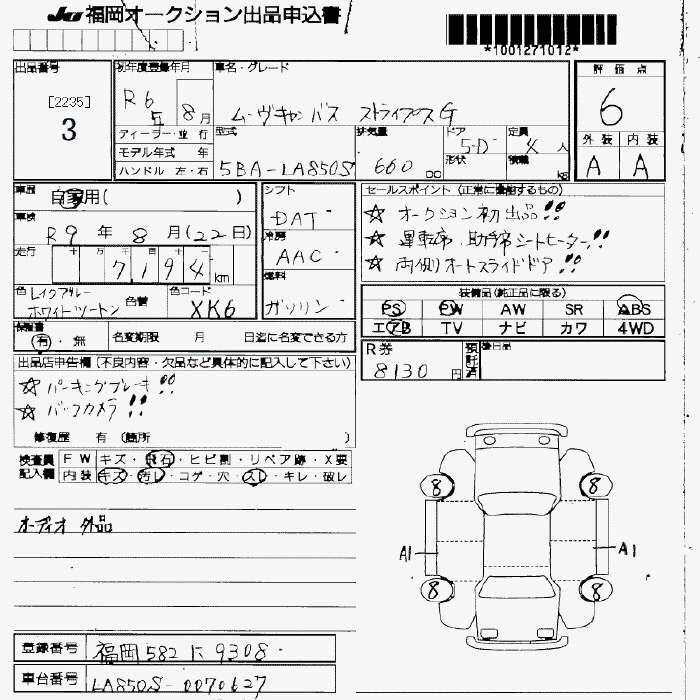 JU 福岡オークション出品申込書
*1001271012*
出品番号
[2235]
3
初年度登録年月
R6年 8月
車名・グレード
ムーヴキャンバス ストライプスG
評価点
6
ディーラー・並行
モデル年式 年
ハンドル 左・右
型式
5BA-LA850S
排気量
660 CC
ドア
5D
形状
定員
4人
積載
kg
外装 内装
A A
車歴
自家用( )
車検
R9年 8月(22日)
走行
十 万 千 百 十
7194 km
色
レイクブルー
ホワイトツートン
色替
色コード
XK6
シフト
DAT
冷房
AAC
燃料
ガソリン
セールスポイント(正常に機能するもの)
☆ オークション初出品!!
☆ 運転席・助手席シートヒーター!!
☆ 両側オートスライドドア!!
装備品(純正品に限る)
PS PW AW SR ABS
エアB TV ナビ カワ 4WD
保証書
有・無
名変期限 月 日迄に名変できる方
R券
8130円
預託済
後日品
出品店申告欄(不良内容・欠品など具体的に記入して下さい)
☆ パーキングブレーキ!!
☆ バックカメラ!!
修復歴 有(箇所 )
検査員記入欄
FW キズ・飛石・ヒビ割・リペア跡・X要
内装 キズ・汚レ・コゲ・穴・スレ・キレ・破レ
オーディオ 外品
8 8
A1 A1
8 8
登録番号
福岡 582 に 9308
車台番号
LA850S-0070627